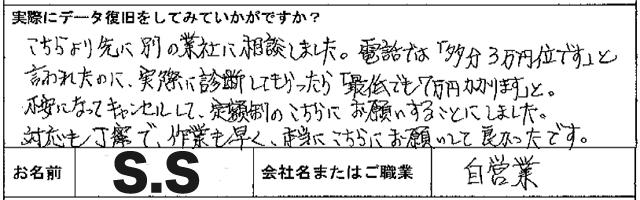 実際にデータ復旧をしてみていかがですか？
こちらより先に別の業社に相談しました。電話では「多分3万円位です」と
言われたのに、実際に診断してもらったら「最低でも7万円かかります」と。
不安になってキャンセルして、定額制のこちらにお願いすることにしました。
対応も丁寧で、作業も早く、本当にこちらにお願いして良かったです。
お名前 S.S 会社名またはご職業 自営業